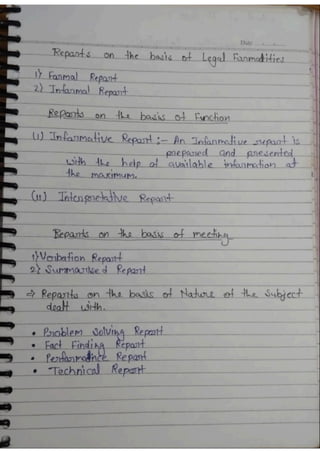 Date
Reports on the basis of Legal Formalities
1) Formal Report
2) Informal Report
Reports on the basis of Function
(i) Informative Report :- An Informative report is
prepared and presented
with the help of available information at
the maximum.
(ii) Interpretative Report
Reports on the basis of meeting
1) Verbation Report
2) Summarised Report
⇒ Reports on the basis of Nature of the Subject
dealt with.
• Problem Solving Report
• Fact Finding Report
• Performance Report
• Technical Report